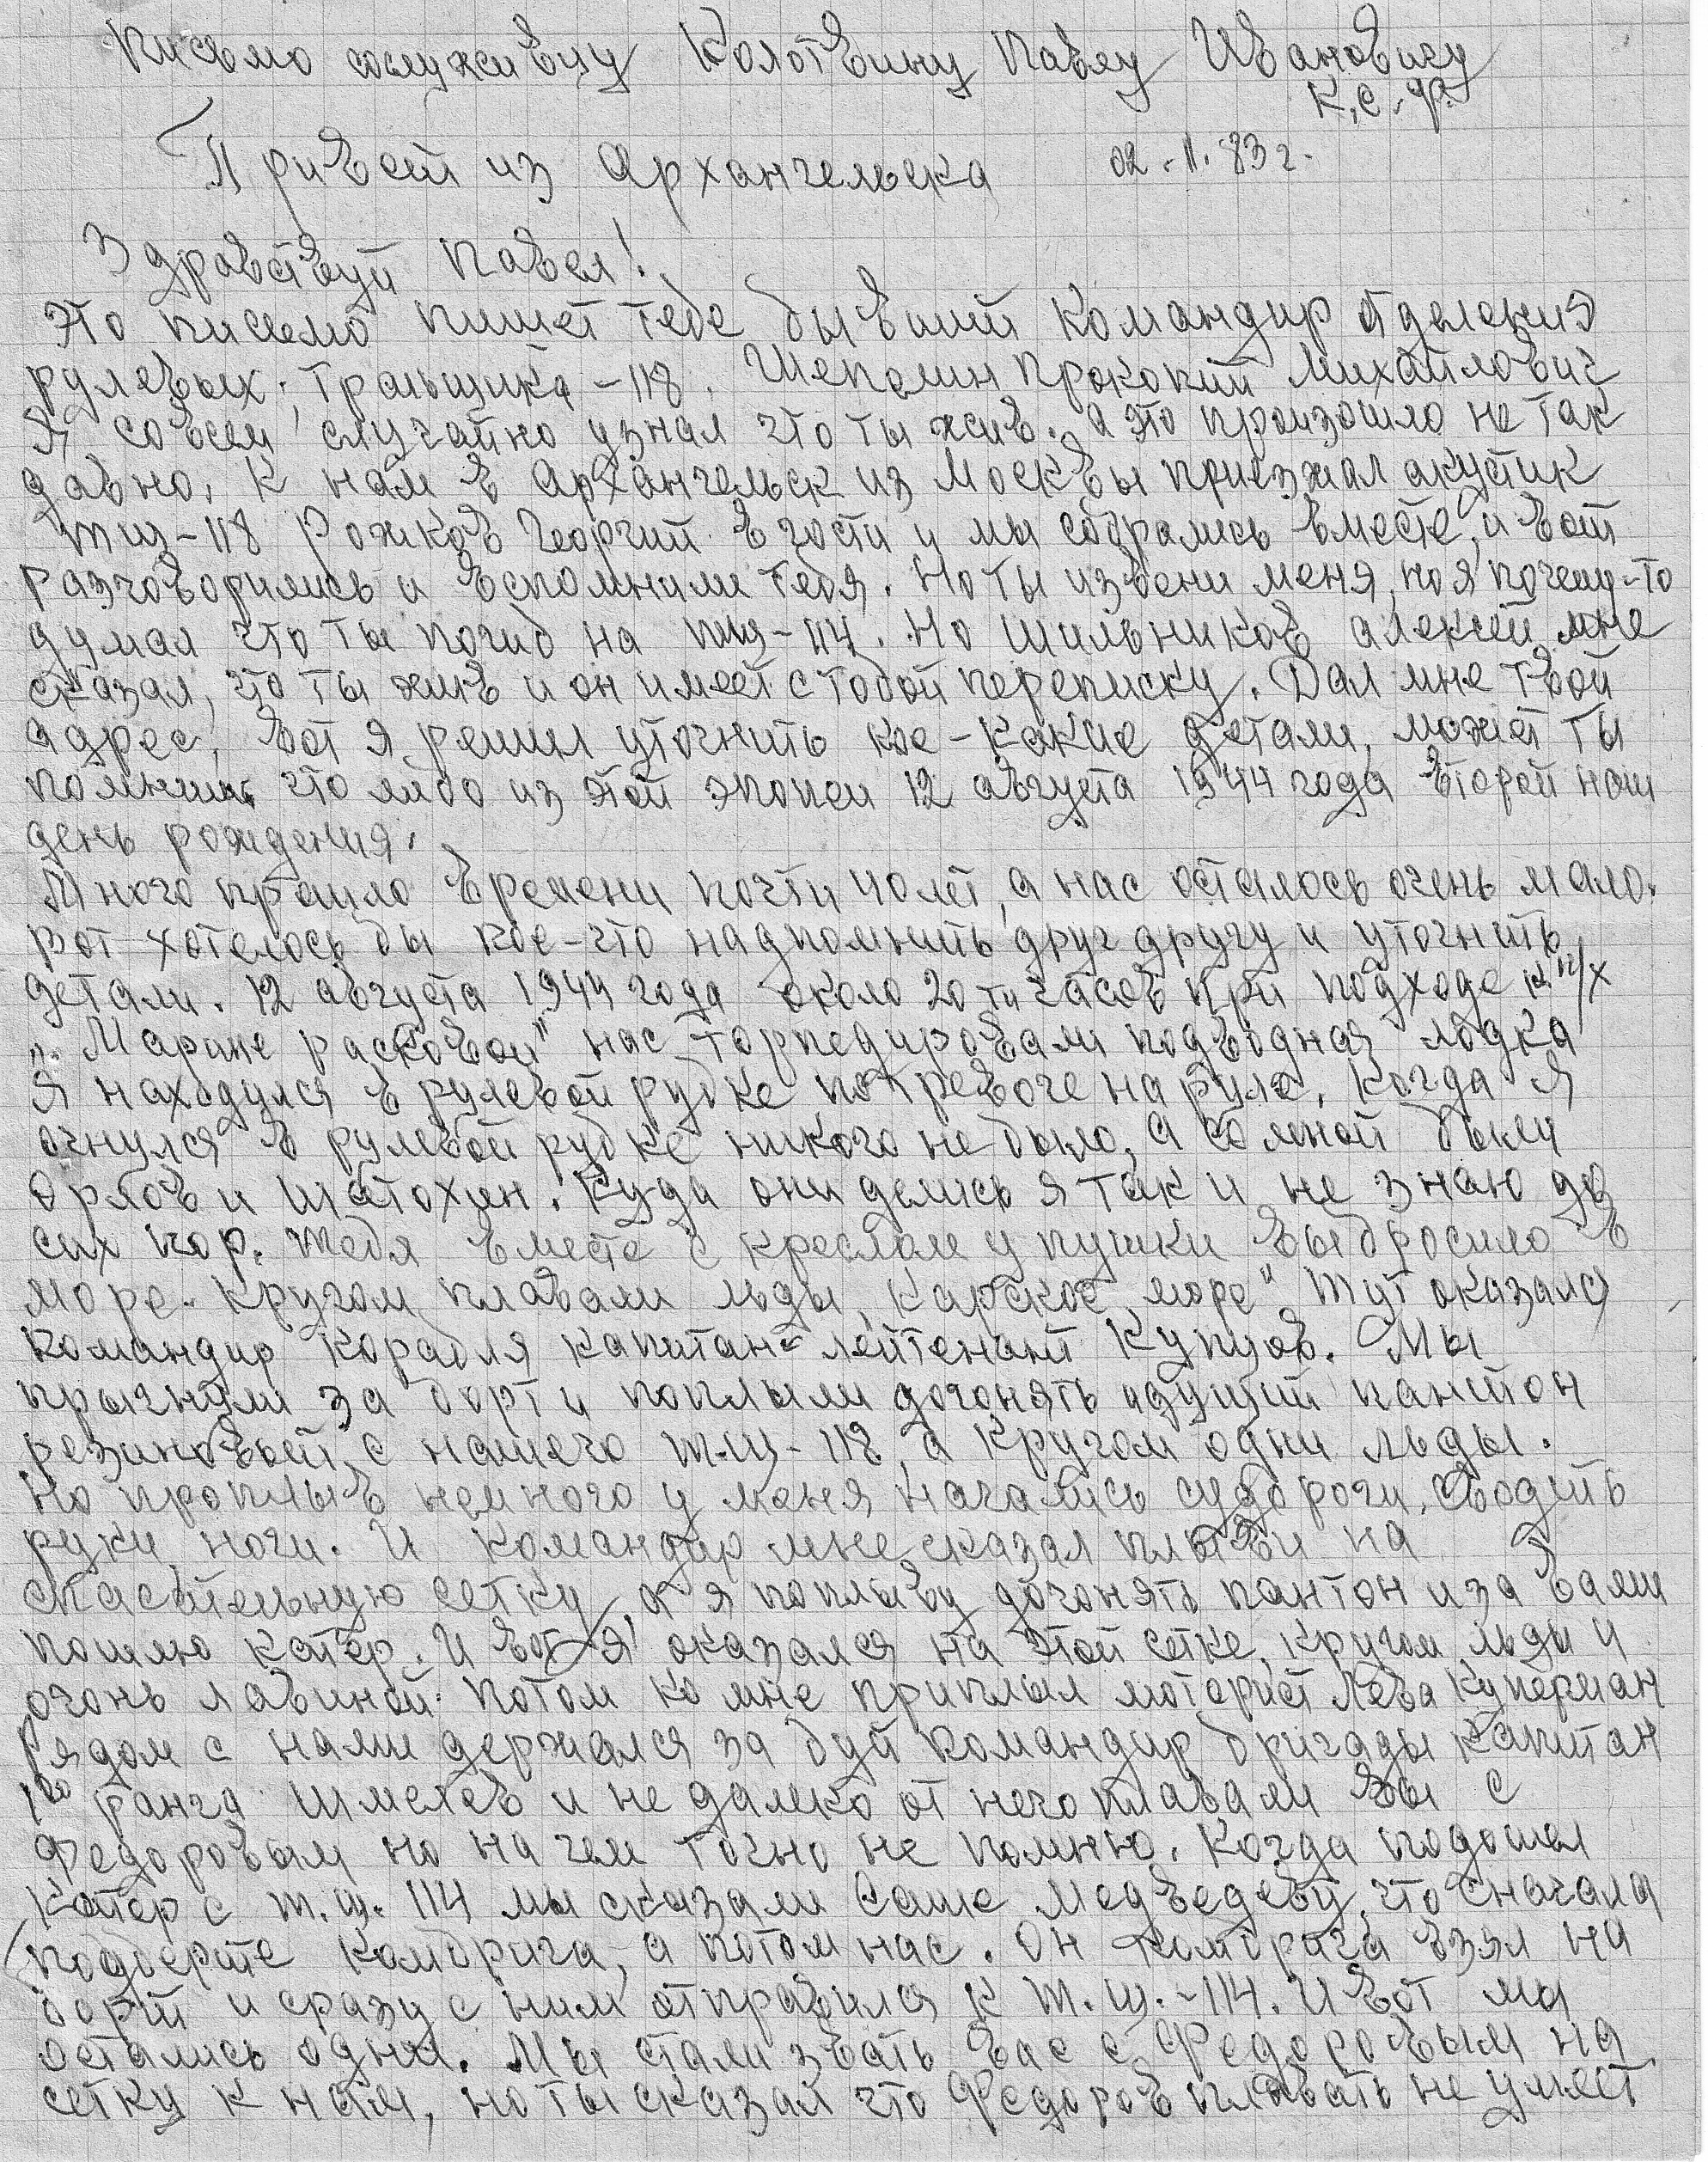 Письмо сослуживцу Колотвину Павлу Ивановичу
К.С.Ф.
Привет из Архангельска 02.11.83 г.
Здравствуй Павел!
Это письмо пишет тебе бывший командир отделения
рулевых, тральщика-118. Шепелин Прокопий Михайлович
Я совсем случайно узнал что ты жив. а это произошло не так
давно. К нам в Архангельск из Москвы приезжал акустик
тщ-118 Рожков Георгий в гости и мы собрались вместе, и вот
разговорились и вспомнили тебя. Но ты извени меня, но я почему-то
думал что ты погиб на тщ-114. Но Шильников Алексей мне
сказал, что ты жив и он имеет с тобой переписку. Дал мне твой
адрес, вот я решил уточнить кое-какие детали, может ты
помнишь что либо из этой эпопеи 12 августа 1944 года второй наш
день рождения.
Много прошло времени почти 40 лет, а нас осталось очень мало.
вот хотелось бы кое-что надпомнить друг другу и уточнить
детали. 12 августа 1944 года около 20 ти часов при подходе к п/х
"Марине расковой" нас торпедировали подводная лодка
Я находился в рулевой рубке по тревоге на руле. Когда я
очнулся в рулевой рубке никого не было, а со мной были
Орлов и Шатохин. Куда они делись я так и не знаю до
сих пор. Тебя вместе с креслом у пушки выбросило в
море. Кругом плавали льды, Карское море" Тут оказался
командир корабля капитан-лейтенант Купцов. Мы
прыгнули за борт и поплыли догонять идущий пантон
резиновый с нашего т.щ-118, а кругом одни льды.
Но проплыв немного у меня начались судороги, сводить
руки, ноги. И командир мне сказал плыви на
спасательную сетку, а я поплыву догонять пантон и за вами
пошлю катер. И вот я оказался на этой сетке, кругом льды и
огонь лавиной. Потом ко мне приплыл моторист Лева Куперман
Рядом с нами держался за буй командир бригады капитан
1го ранга Шмелев и не далеко от него плавали вы с
Федоровым но на чем точно не помню. Когда подошел
катер с т.щ. 114 мы сказали Саше Медведеву, что сначала
подберите комбрига, а потом нас. Он комбрига взял на
борт и сразу с ним отправился к т.щ.-114. И вот мы
остались одни. Мы стали звать вас с Федоровым на
сетку к нам, но ты сказал что Федоров плавать не умеет